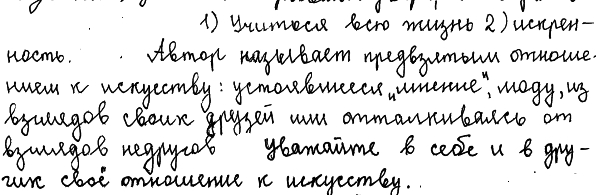 1) Учиться всю жизнь 2) искрен-
ность. Автор называет предвзятым отноше-
нием к искусству: устоявшееся "мнение", моду, из
взглядов своих друзей или отталкиваясь от
взглядов недругов уважайте в себе и в дру-
гих своё отношение к искусству.